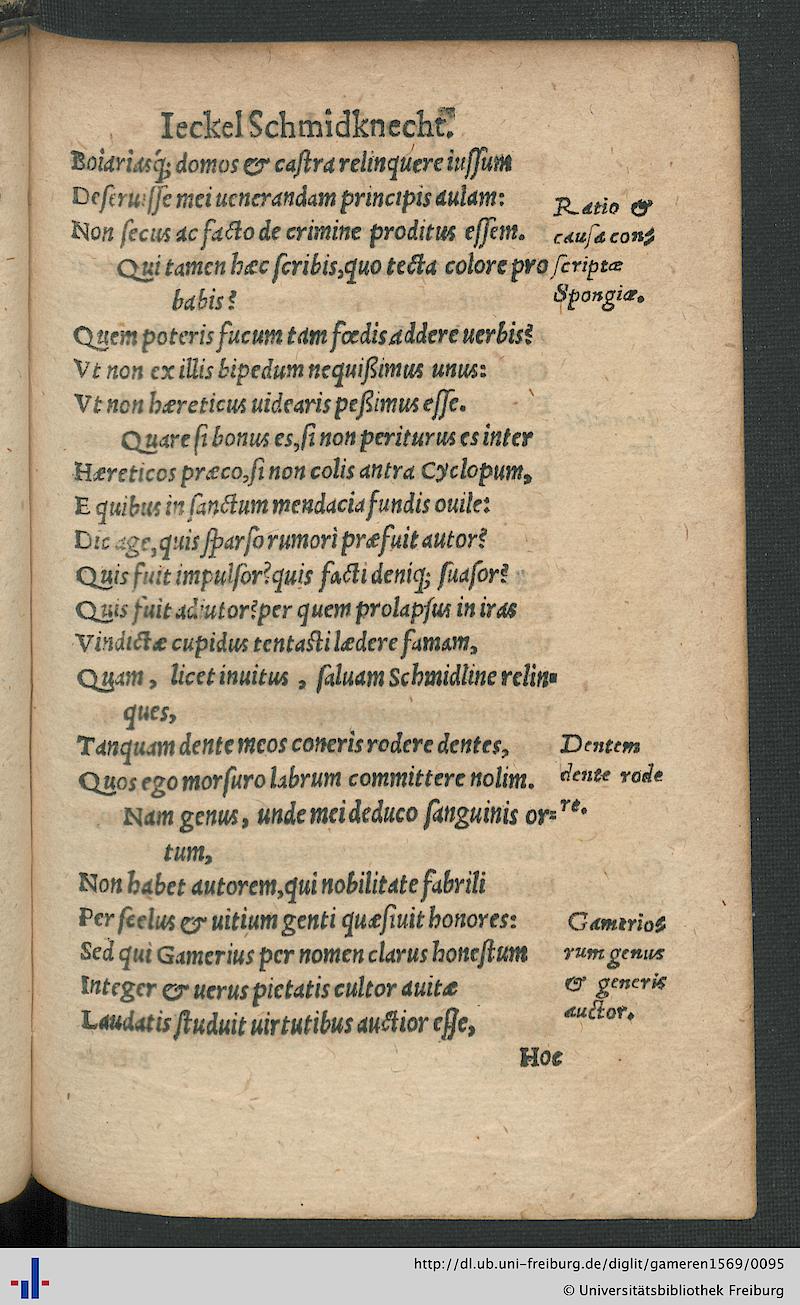 Ieckel Schmidknecht.
Boiariasq; domos & castra relinquere iussum
Deseruisse mei uenerandam principis aulam:
Non secus ac facto de crimine proditus essem.
Qui tamen hæc scribis, quo tecta colore pro
babis?
Quem poteris fucum tam fœdis addere uerbis?
Vt non ex illis bipedum nequißimus unus:
Vt non hæreticus uidearis peßimus esse.
Quare si bonus es, si non periturus es inter
Hæreticos præco, si non colis antra Cyclopum,
E quibus in sanctum mendacia fundis ouile:
Dic age, quis sparso rumori præfuit autor?
Quis fuit impulsor? quis facti deniq; suasor?
Quis fuit adiutor? per quem prolapsus in iras
Vindictæ cupidus tentasti lædere famam,
Quam, licet inuitus, saluam Schmidline relin=
ques,
Tanquam dente meos coneris rodere dentes,
Quos ego morsuro labrum committere nolim.
Nam genus, unde mei deduco sanguinis or=
tum,
Non habet autorem, qui nobilitate fabrili
Per scelus & uitium genti quæsiuit honores:
Sed qui Gamerius per nomen clarus honestum
Integer & uerus pietatis cultor auitæ
Laudatis studuit uirtutibus auctior esse,
Hoc
Ratio &
causa con=
scriptæ
Spongiæ.
Dentem
dente rode
re.
Gamerio=
rum genus
& generis
auctor.
http://dl.ub.uni-freiburg.de/diglit/gameren1569/0095
© Universitätsbibliothek Freiburg